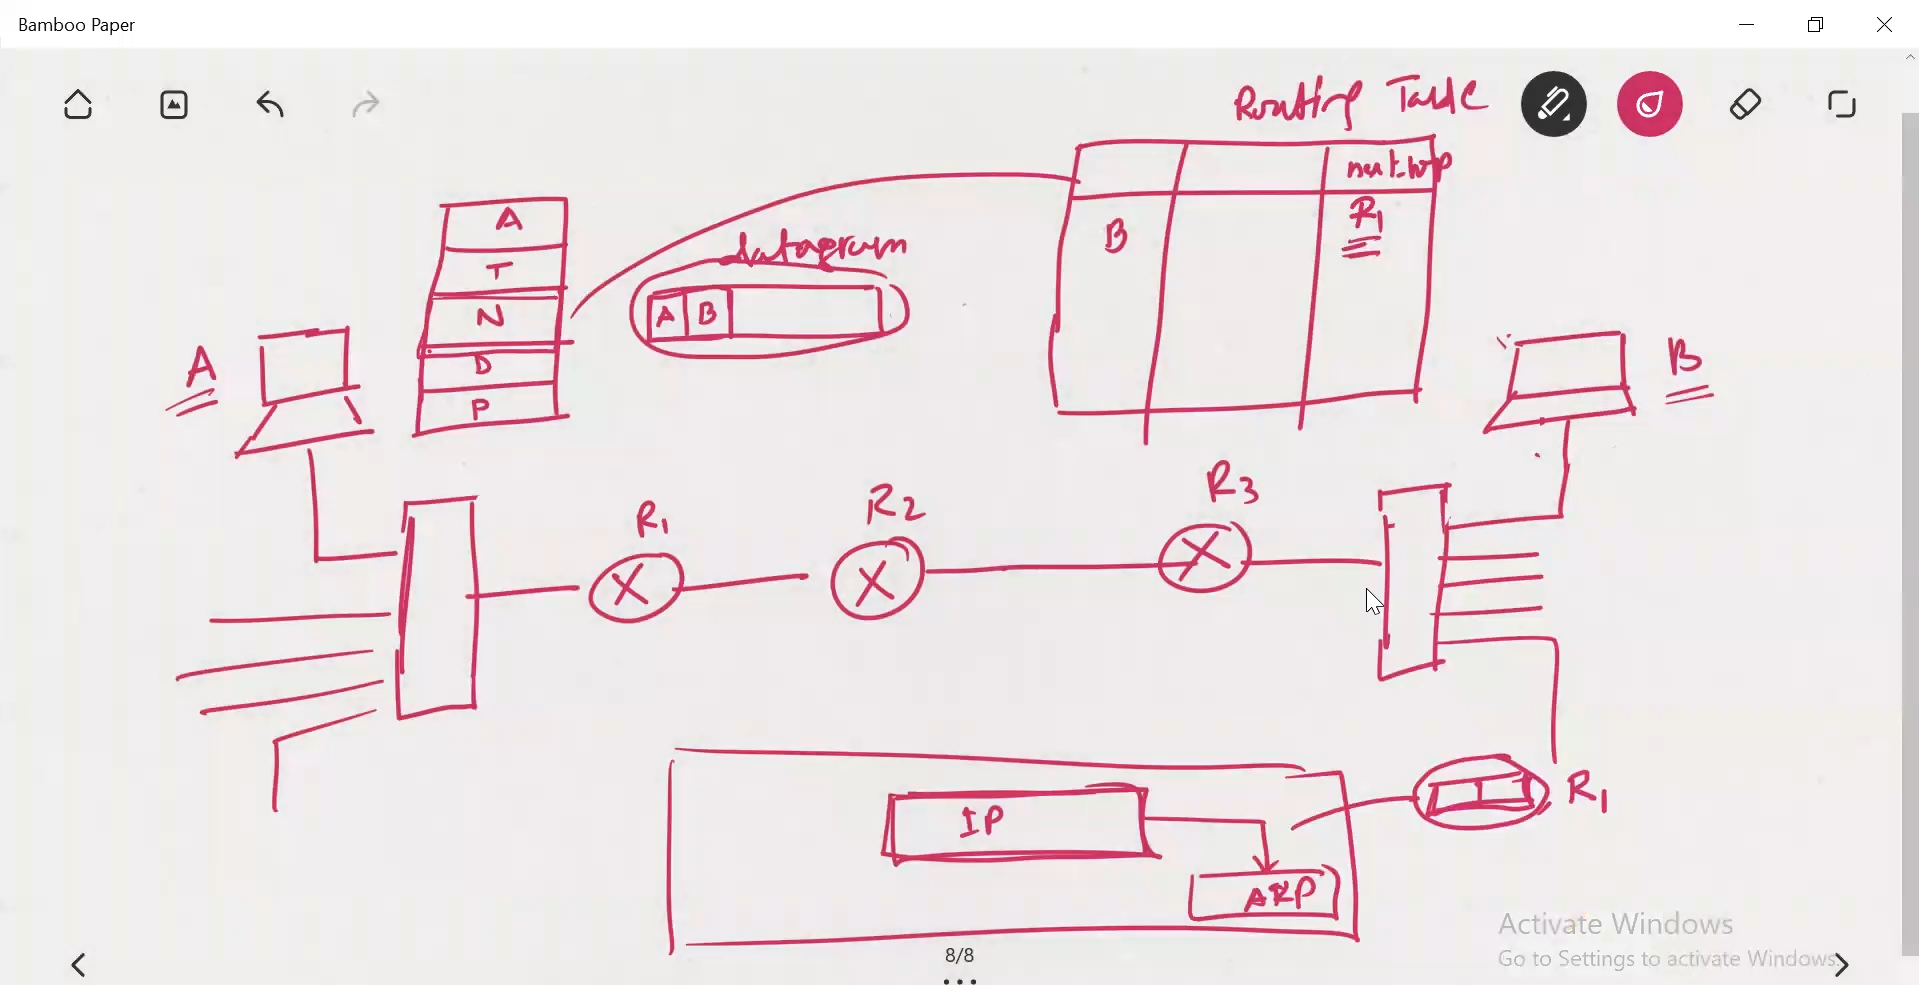 Bamboo Paper
Routing Table
next-hop
B
R1
A
T
N
D
P
datagram
A B
A
B
R1
R2
R3
IP
ARP
R1
Activate Windows
Go to Settings to activate Windows.
8/8